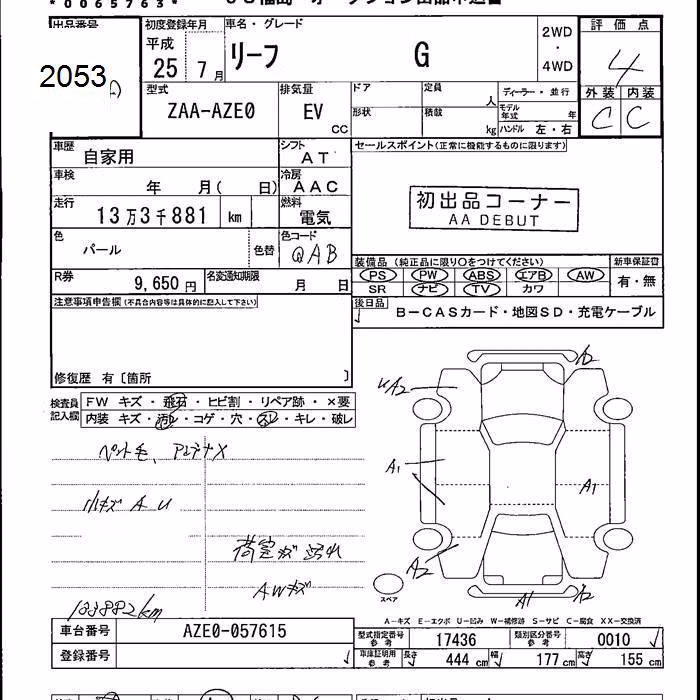 *0065763*
出品番号
初度登録年月
車名・グレード
評価点
2053
平成
25 7月
リーフ G
2WD
・
4WD
4
型式
ZAA-AZE0
排気量
EV
CC
ドア
定員
人
ディーラー・並行
形状
積載
kg
モデル年式
年
ハンドル 左・右
外装 内装
C C
車歴
自家用
シフト
AT
セールスポイント(正常に機能するものに限ります)
車検
年 月( 日)
冷房
AAC
初出品コーナー
AA DEBUT
走行
13万3千881 km
燃料
電気
色
パール
色替
色コード
QAB
装備品 (純正品に限り○をつけてください)
新車保証書
PS PW ABS エアB AW
有・無
SR ナビ TV カワ
R券
9,650 円
名変通知期限
月 日
注意事項申告欄(不具合内容等は具体的に記入して下さい)
後日品
B-CASカード・地図SD・充電ケーブル
修復歴 有〔箇所 〕
検査員記入欄
FW キズ・飛石・ヒビ割・リペア跡・×要
内装 キズ・汚レ・コゲ・穴・スレ・キレ・破レ
ペット毛、アンテナX
小キズ A U
荷室キズ 汚れ
AWキズ
133882km
A2
UA2
A1
A1
A2
A1
A2
スペア
A-キズ E-エクボ U-凹み W-補修跡 S-サビ C-腐食 XX-交換済
車台番号
AZE0-057615
型式指定番号
参考
17436
類別区分番号
参考
0010
登録番号
車庫証明用
参考
長さ
444 cm
幅
177 cm
高さ
155 cm